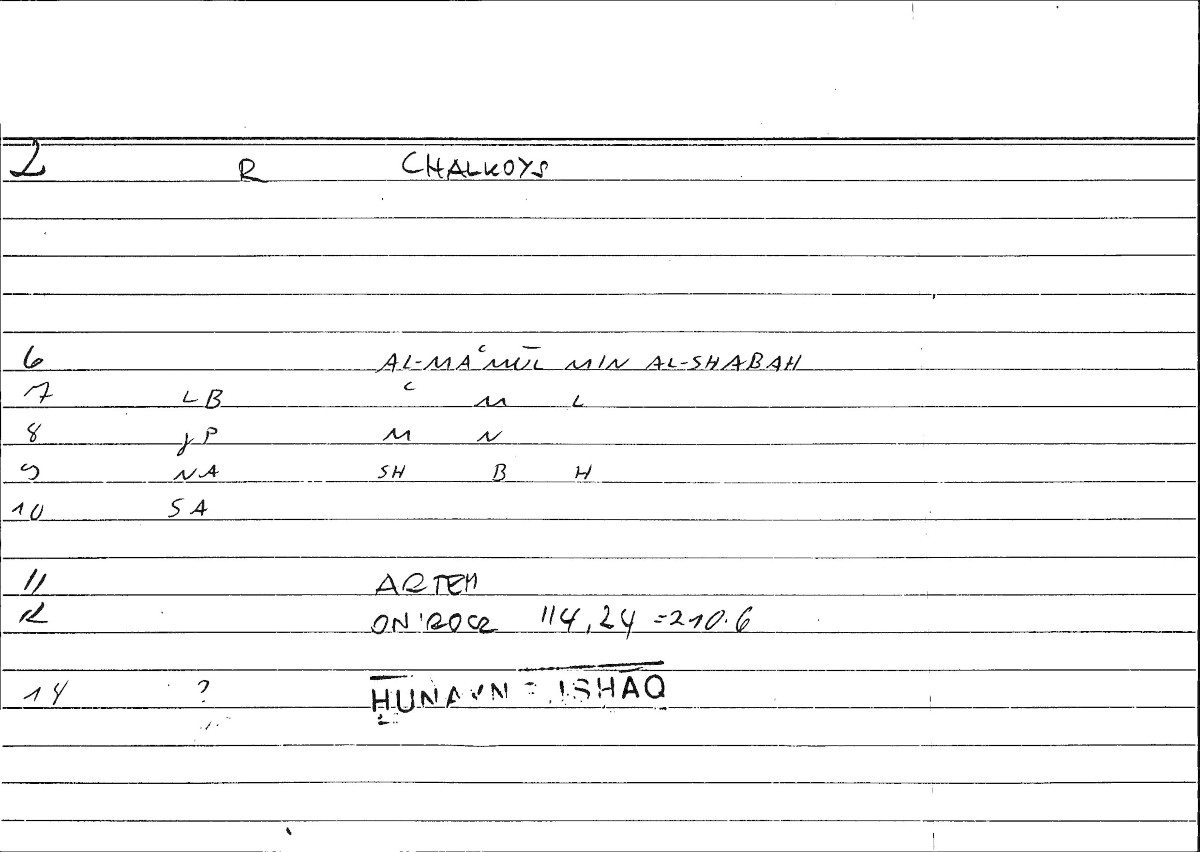 2 R CHALKOYS
6 AL-MAʿMŪL MIN AL-SHABAH
7 LB ʿ M L
8 JP M N
9 NA SH B H
10 SA
11 ARTEM
12 ONIROCR 114,24 =210.6
14 ? HUNAYN ISHAQ